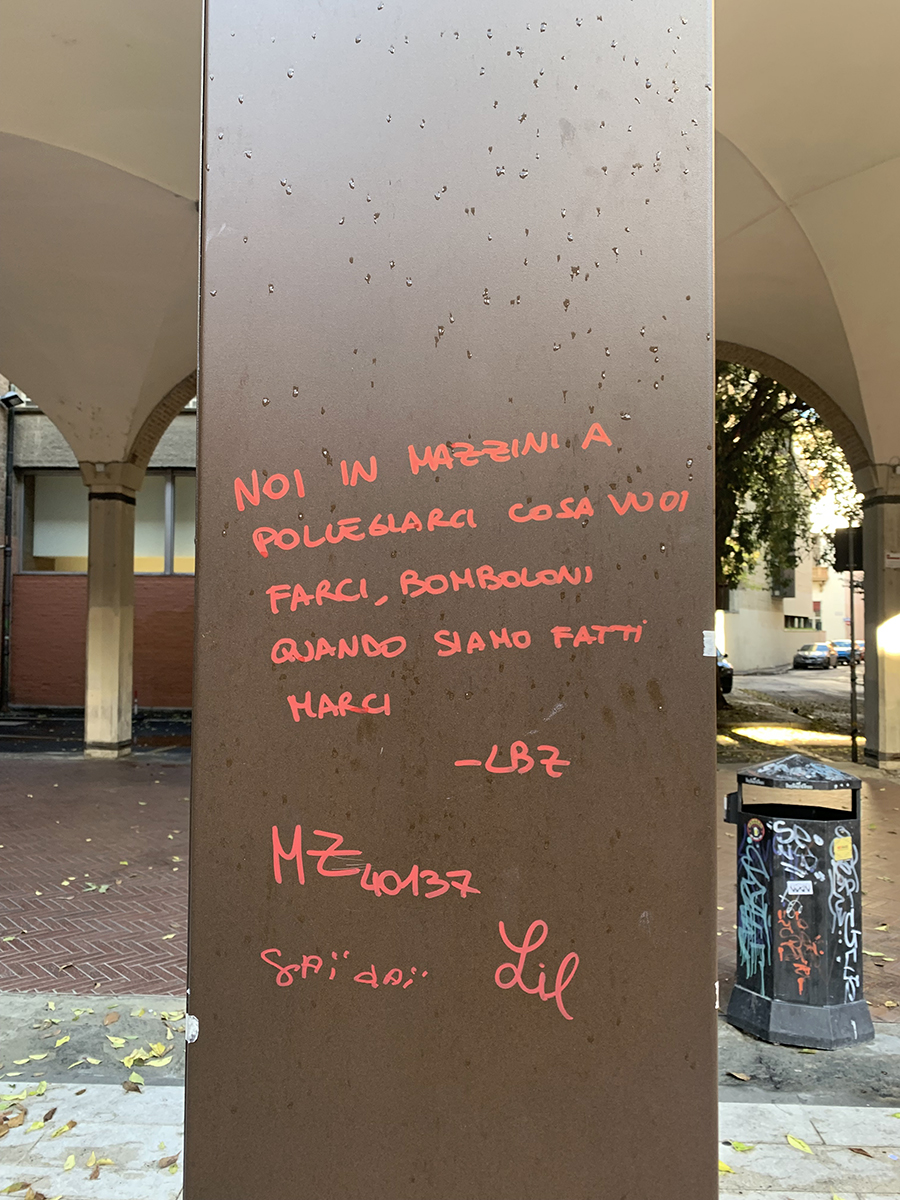 NOI IN MAZZINI A
POLLEGIARCI COSA VUOI
FARCI, BOMBOLONI
QUANDO SIAMO FATTI
MARCI
-LBZ
MZ40137
Lil